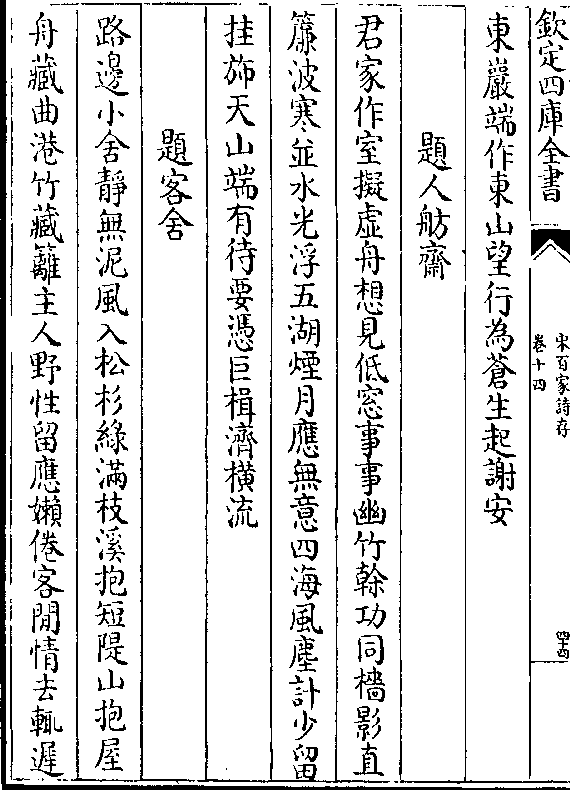 欽定四庫全書
宋百家詩存
卷十四
四十四
東巖端作東山望行為蒼生起謝安
題人舫齋
君家作室擬虛舟想見低窓事事幽竹榦功同檣影直
簾波寒並水光浮五湖煙月應無意四海風塵計少留
挂斾天山端有待要憑巨楫濟橫流
題客舍
路邊小舍靜無泥風入松杉綠滿枝溪抱短隄山抱屋
舟藏曲港竹藏籬主人野性留應嬾倦客閒情去輒遲